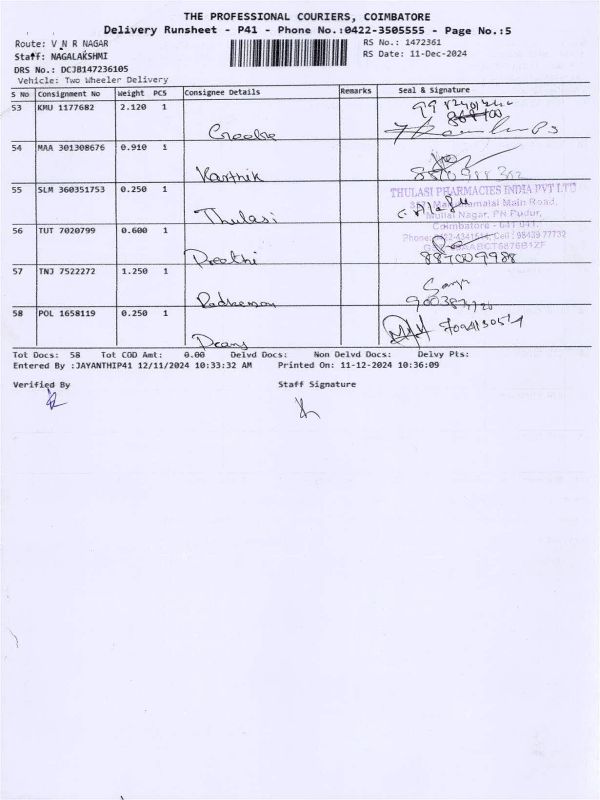 THE PROFESSIONAL COURIERS, COIMBATORE
Delivery Runsheet - P41 - Phone No.:0422-3505555 - Page No.:5
Route: V N R NAGAR
RS No.: 1472361
Staff: NAGALAKSHMI
RS Date: 11-Dec-2024
DRS No.: DCJB147236105
Vehicle: Two Wheeler Delivery
S No Consignment No Weight PCS Consignee Details Remarks Seal & Signature
53 KMU 1177682 2.120 1
54 MAA 301308676 0.910 1
Karthik
55 SLM 360351753 0.250 1
THULASI PHARMACIES INDIA PVT LTD
Main Road,
Nagar, PN Pudur,
Thulasi
Coimbatore - 641 041.
56 TUT 7020799 0.600 1
Phone: Cell : 98439 77732
Preethi
887009988
57 TNJ 7522272 1.250 1
58 POL 1658119 0.250 1
Tot Docs: 58 Tot COD Amt: 0.00 Delvd Docs: Non Delvd Docs: Delvy Pts:
Entered By :JAYANTHIP41 12/11/2024 10:33:32 AM Printed On: 11-12-2024 10:36:09
Verified By Staff Signature